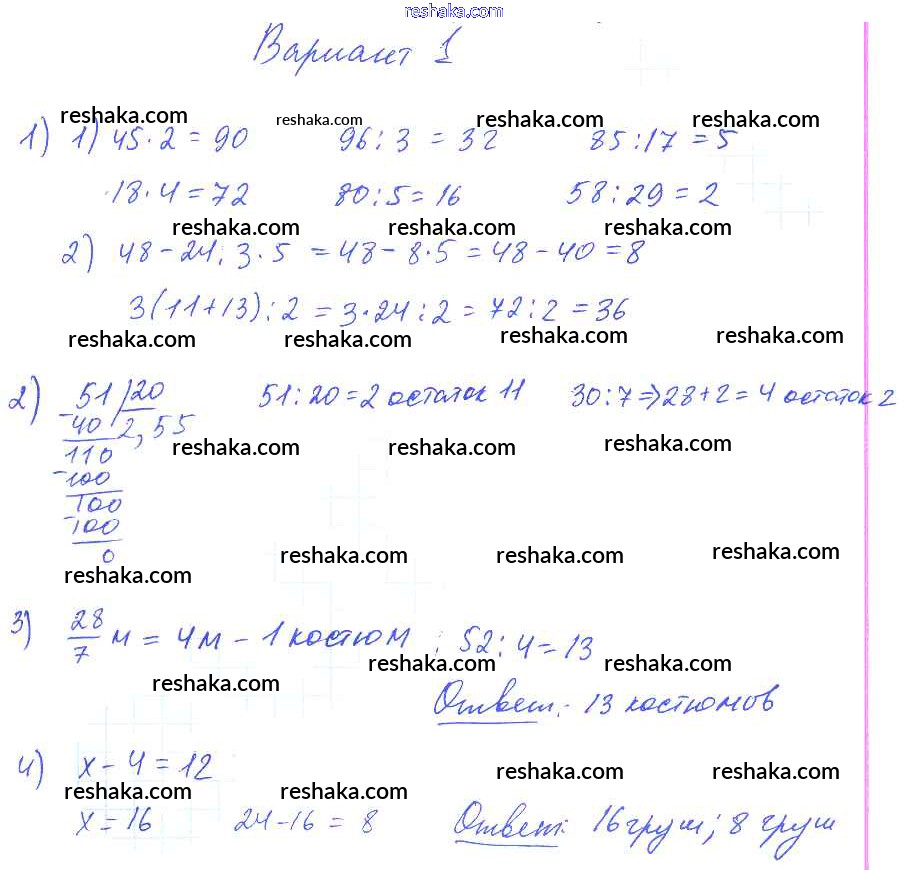 reshaka.com
Вариант 1
reshaka.com reshaka.com reshaka.com reshaka.com
1) 1) 45·2 = 90 96:3 = 32 85:17 = 5
18·4 = 72 80:5 = 16 58:29 = 2
reshaka.com reshaka.com reshaka.com
2) 48 - 24:3·5 = 48 - 8·5 = 48 - 40 = 8
3(11+13):2 = 3·24:2 = 72:2 = 36
reshaka.com reshaka.com reshaka.com reshaka.com
2) 51 20 51:20 = 2 остаток 11 30:7 => 28+2 = 4 остаток 2
-40 2,55
reshaka.com reshaka.com reshaka.com
110
-100
100
-100
0
reshaka.com reshaka.com reshaka.com
reshaka.com
3) 28/7 м = 4м - 1 костюм ; 52:4 = 13
reshaka.com reshaka.com
reshaka.com
Ответ: 13 костюмов
4) x - 4 = 12
reshaka.com reshaka.com
reshaka.com reshaka.com
x = 16 24-16 = 8 Ответ: 16 груш; 8 груш